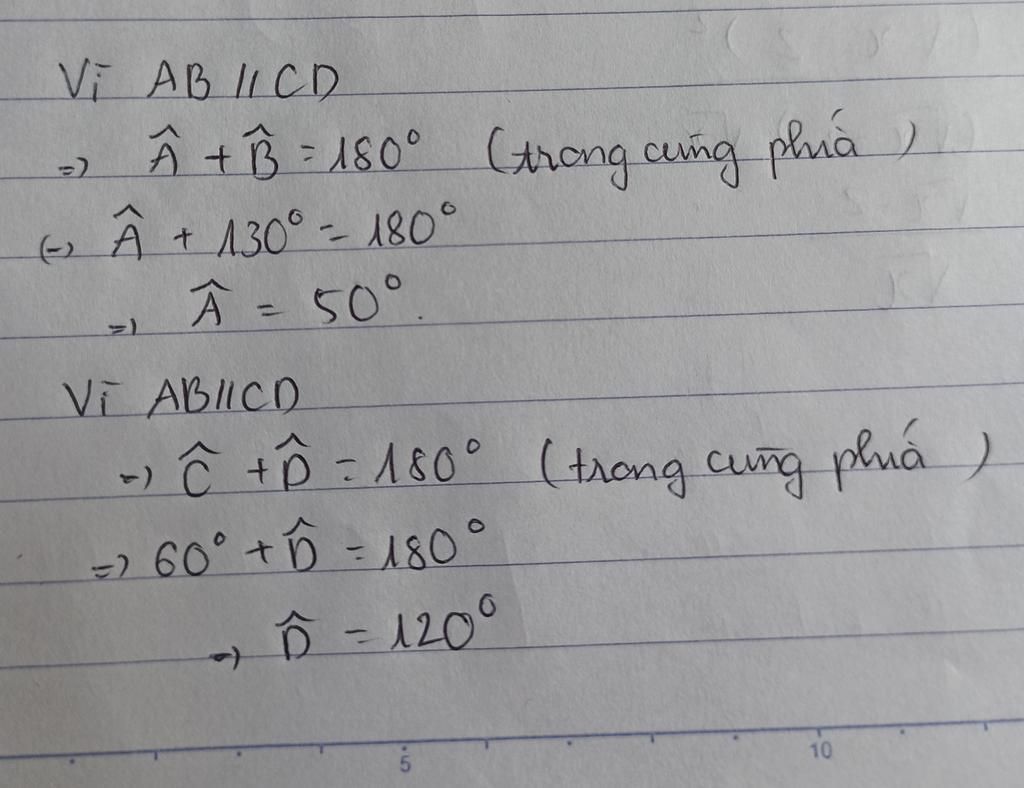 Vì AB // CD
=> Â + B̂ = 180° (trong cùng phía)
(=) Â + 130° = 180°
=> Â = 50°.
Vì AB//CD
=> Ĉ + D̂ = 180° (trong cùng phía)
=> 60° + D̂ = 180°
=> D̂ = 120°
5 10